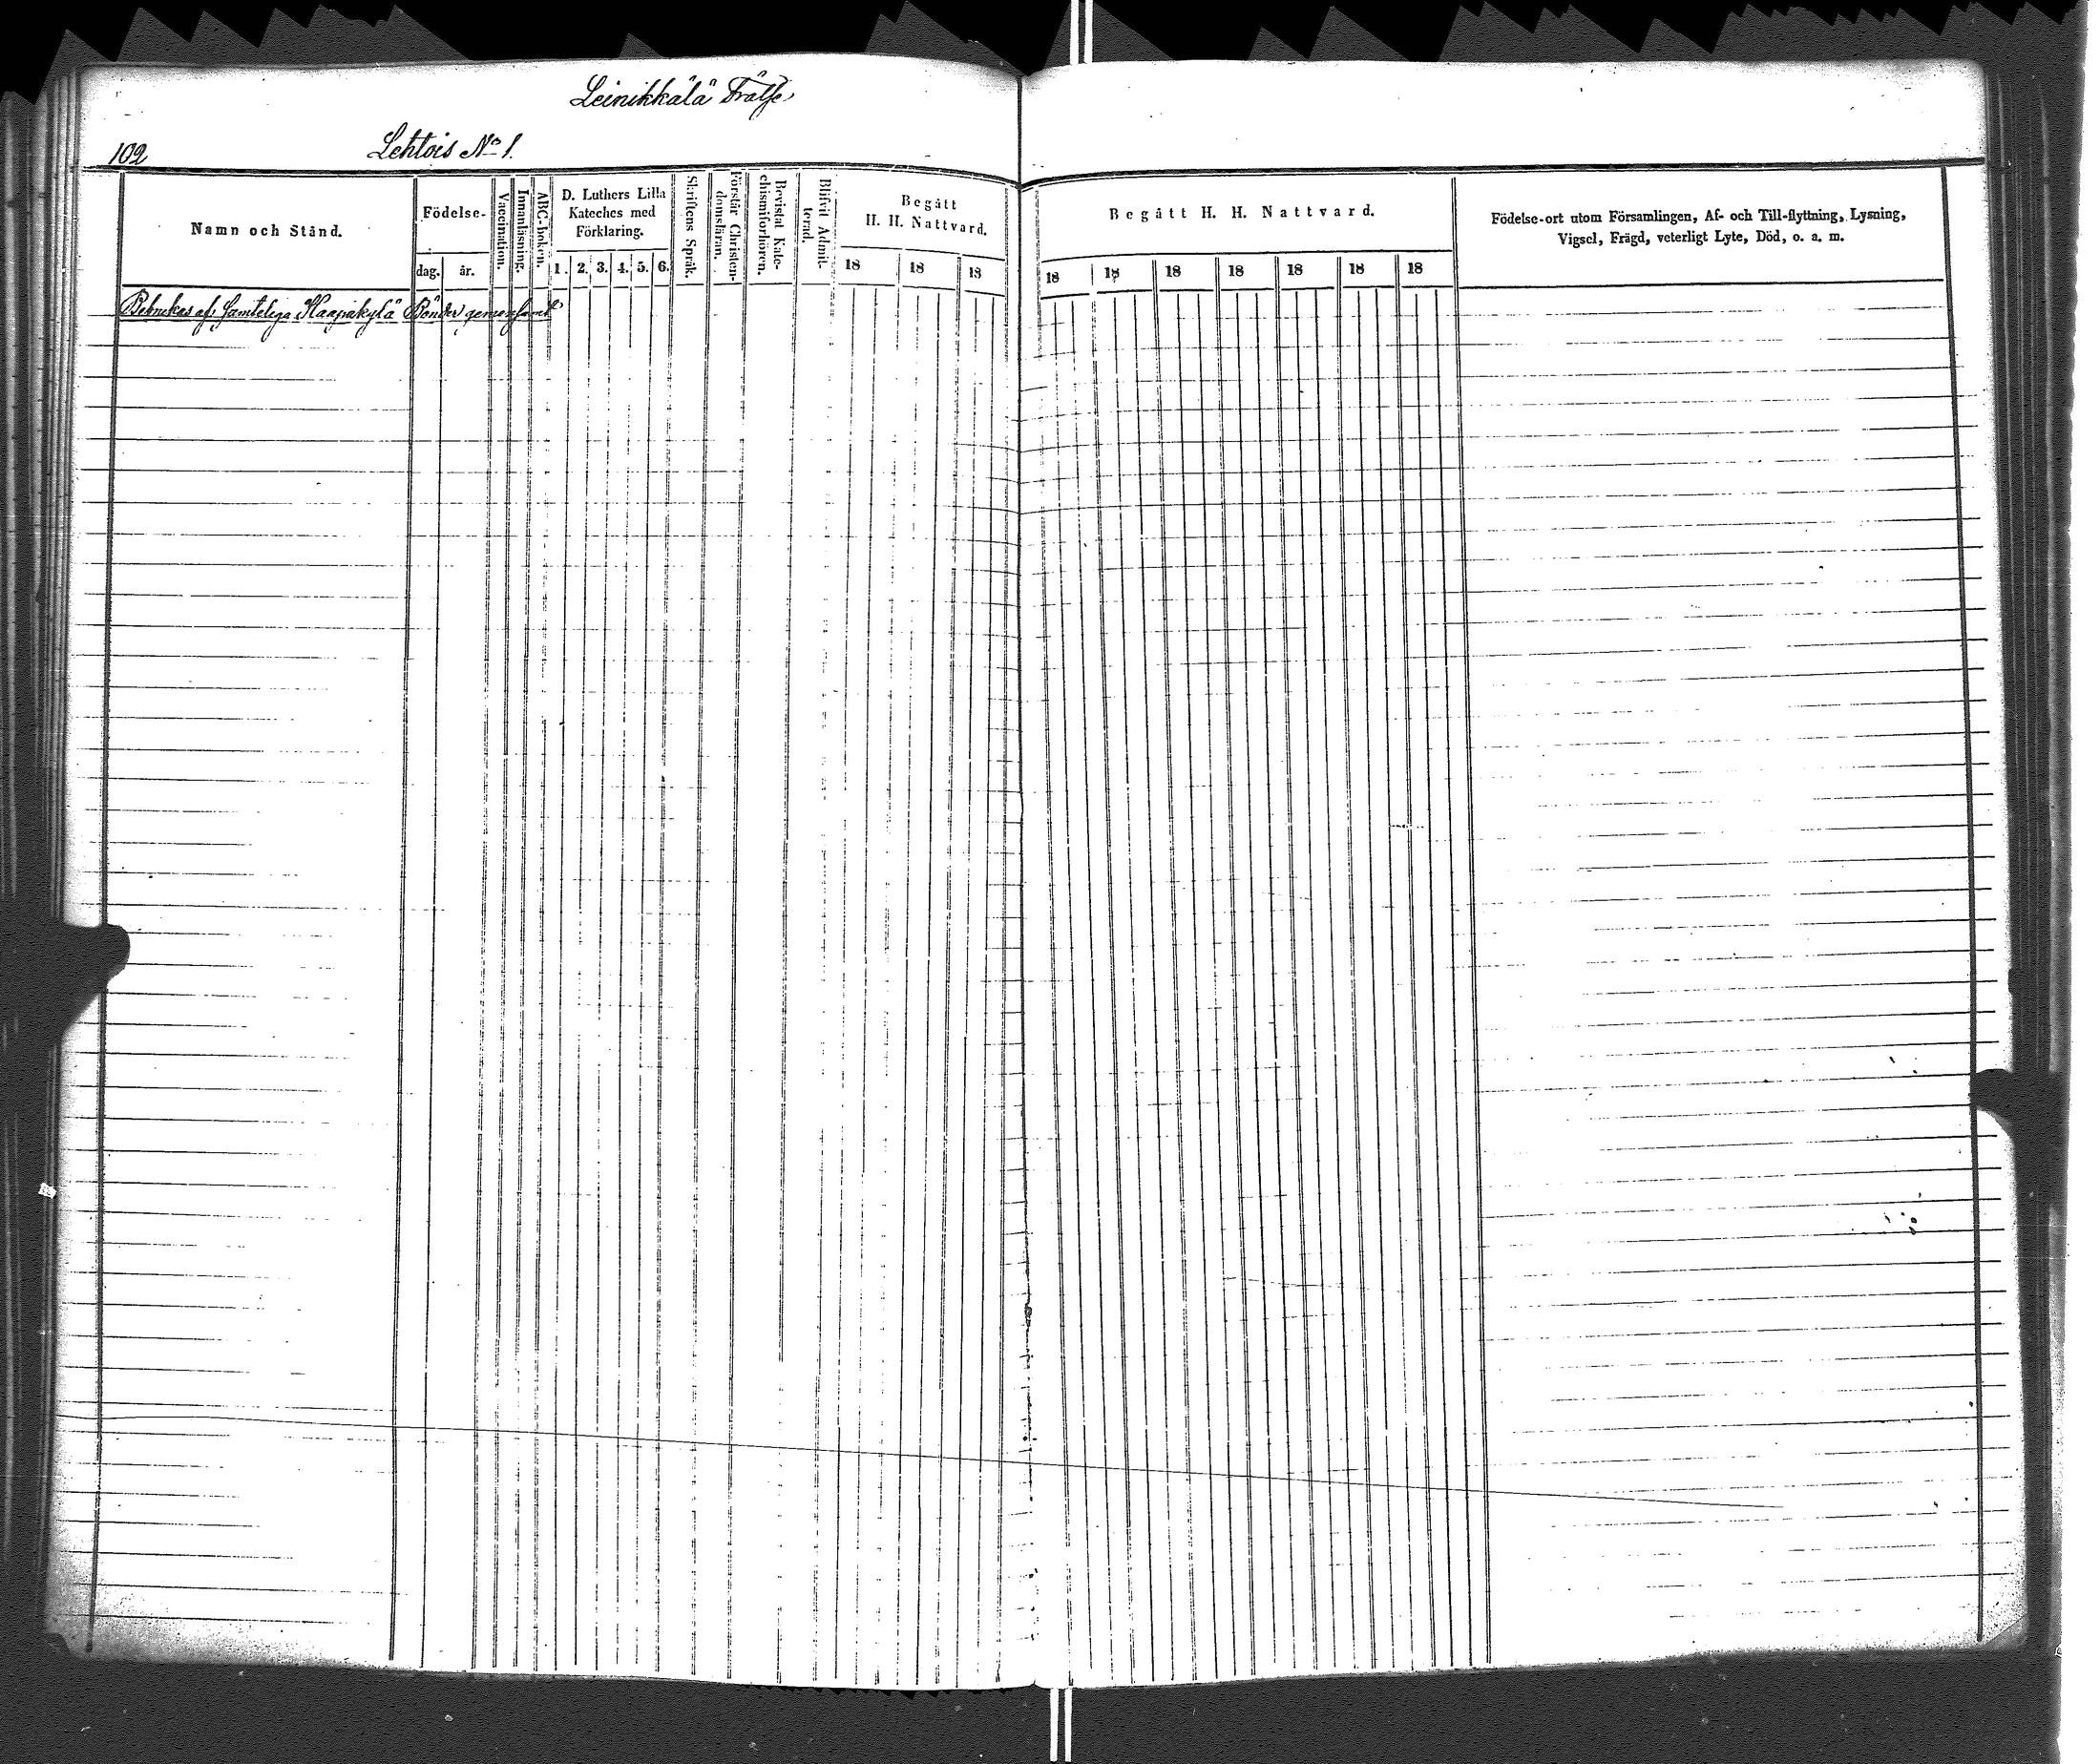 Leinikkälä Frälse
102
Lehtois No 1.
Namn och Stånd.
Födelse-
dag.
år.
Vaccination.
Innanläsning.
ABC-boken.
D. Luthers Lilla
Kateches med
Förklaring.
1. 2. 3. 4. 5. 6.
Skriftens Språk.
Förstår Christen-
domsläran.
Bevistat Kate-
chismiförhören.
Blifvit Admit-
terad.
Begått
H. H. Nattvard.
18 18 18
Begått H. H. Nattvard.
18 18 18 18 18 18 18
Födelse-ort utom Församlingen, Af- och Till-flyttning, Lysning,
Vigsel, Frägd, veterligt Lyte, Död, o. a. m.
Bebrukas af samtelige Haapakylä Bönder gemensamt